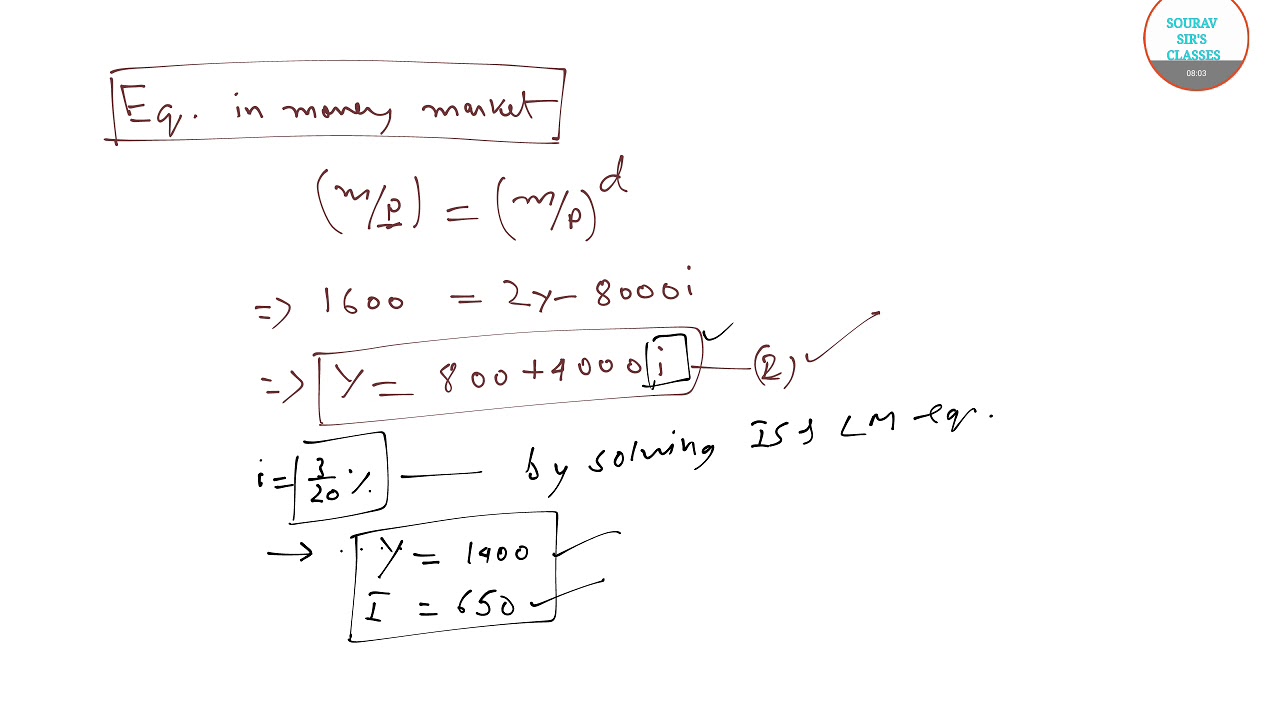 SOURAV
SIR'S
CLASSES
08:03
Eq. in money market
(m/p) = (m/p)^d
=> 1600 = 2Y - 8000i
=> Y = 800 + 4000 i — (2)
i = 3/20 % — by solving IS & LM eq.
→ Y = 1400
I = 650